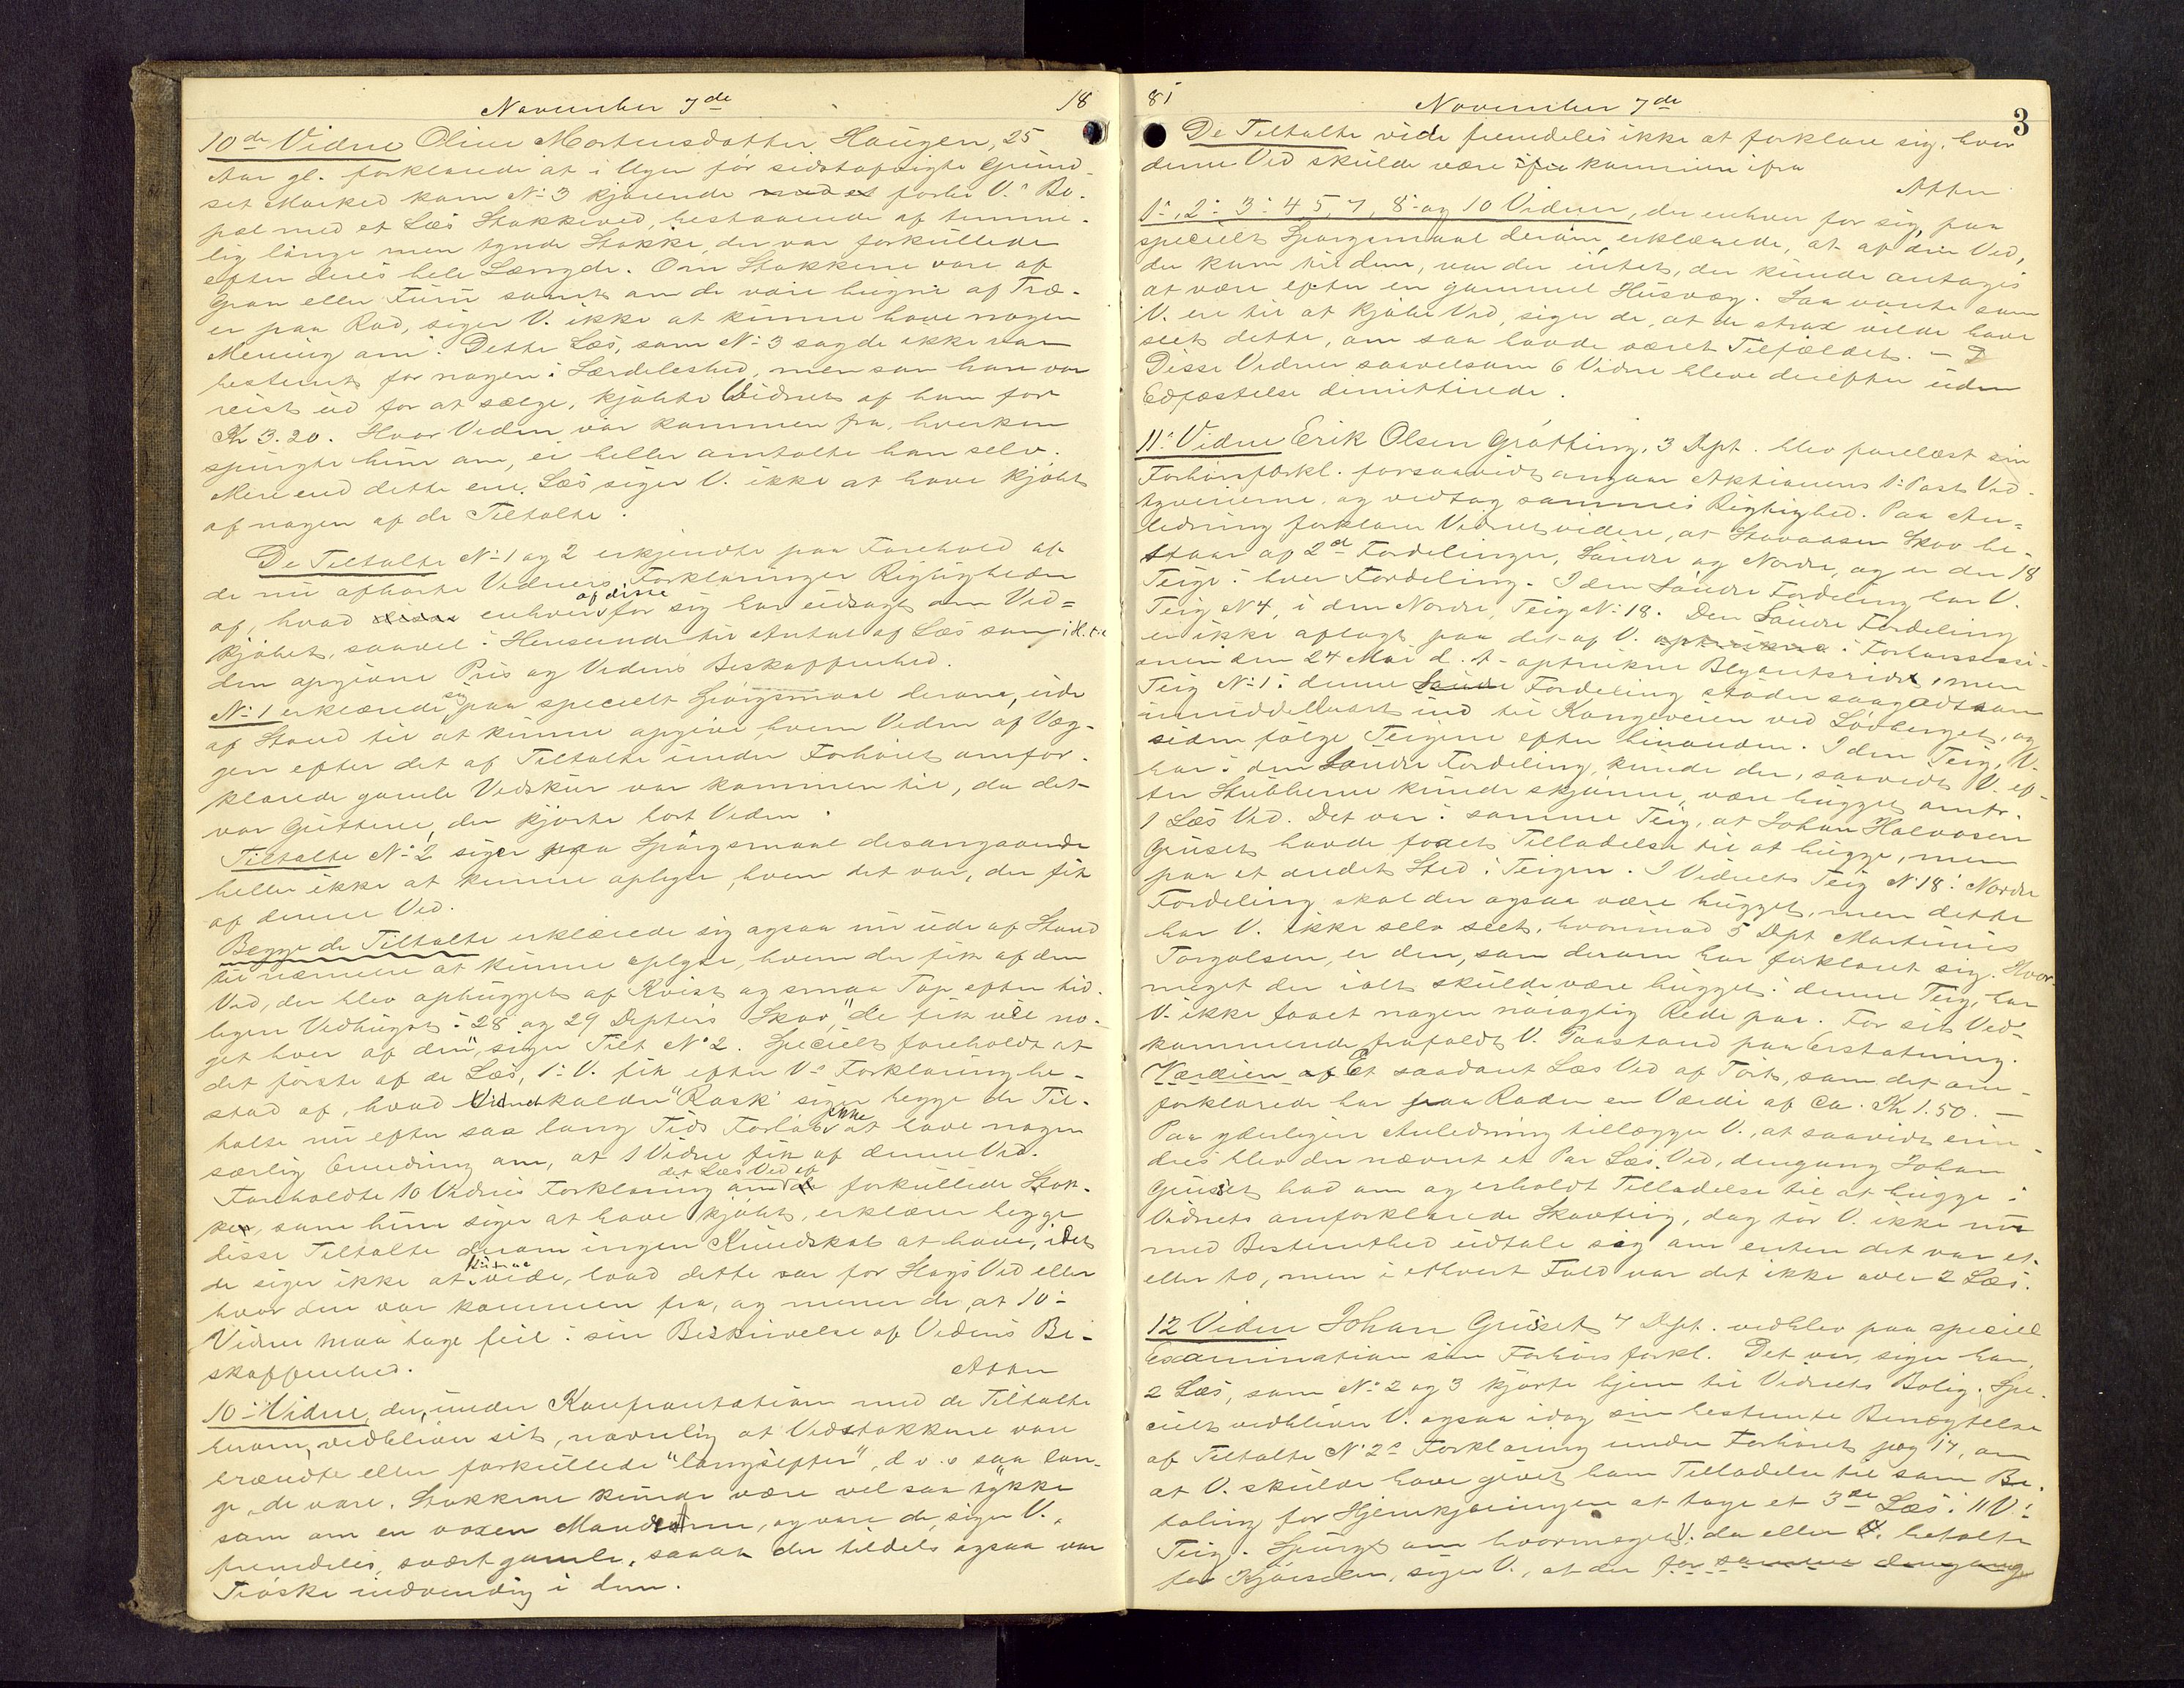 November 7de 18
10de Vidne Oline Mortensdatter Haugen, 25
Aar gl. forklarede at i Ugen før sidstafvigte Grund-
set Marked kom No 3 kjørende med et forbi V.s Bo-
pæl med et Læs Stokkeved, bestaaende af temme-
lig lange men tynde Stokke, der var forkullede
efter deres hele Længde. Om Stokkene vare af
Gran eller Furu samt om de vare hugne af Træ-
er paa Rod, siger V. ikke at kunne have nogen
Mening om. Dette Læs, som No 3 sagde ikke var
bestemt for nogen i Særdeleshed, men som han var
reist ud for at sælge, kjøbte Vidnet af ham for
Kr 3.20. Hvor Veden var kommen fra, hverken
spurgte hun om, ei heller omtalte han selv.
Mere end dette ene Læs siger V. ikke at have kjøbt
af nogen af de Tiltalte.
De Tiltalte No 1 og 2 erkjendte paa Forehold af
de nu afhørte Vidners Forklaringer Rigtigheden
af, hvad disse enhver af disse for sig har udsagt om Ved=
kjøbet, saavel i Henseende til Antal af Læs som i H. t. c
den opgivne Pris og Vedens Beskaffenhed.
No 1 erklærede sig paa specielt Spørgsmaal derom, ude
af Stand til at kunne opgive, hvem Veden af Væg-
gen efter det af Tiltalte under Forhøret omfor-
klarede gamle Vedskur var kommen til, da det
var Gutterne, der kjørte bort Veden.
Tiltalte No 2 siger paa Spørgsmaal desangaaende
heller ikke at kunne oplyse, hvem det var, der fik
af denne Ved.
Begge de Tiltalte erklærede sig ogsaa nu ude af Stand
til nærmere at kunne oplyse, hvem der fik af den
Ved, der blev ophugget af Kvist og smaa Top efter tid-
ligere Vedhugst i 28 og 29 Depters Skov, "de fik vel no-
get hver af den", siger Tilt. No 2. Specielt foreholdt at
det første af de Læs, 1: V. fik efter V.s Forklaring be-
stod af, hvad Vidnet kalder "Rask" siger begge de Til-
talte nu efter saa lang Tids Forløb ikke at have nogen
særlig Erindring om, at 1 Vidne fik af denne Ved.
Foreholdte 10 Vidnes Forklaring om det Læs Ved af forkullede Stok-
ker, som hun siger at have kjøbt, erklærer begge
disse Tiltalte derom ingen Kundskab at have, idet
de siger ikke at kunne vide, hvad dette var for Slags Ved eller
hvor den var kommen fra, og mener de, at 10:
Vidne maa tage feil i sin Beskrivelse af Vedens Be-
skaffenhed.
Atter
10: Vidne, der, under Konfrontation med de Tiltalte
herom, vedbliver sit, navnlig at Vedstokkene vare
brændte eller forkullede "langsefter", d. v. s saa lan-
ge, de vare. Stokkene kunde være vel saa tykke
som om en voxen Mandsarm, og vare de, siger V.,
fremdeles, svært gamle, saa at der tildels ogsaa var
Trøske indvendig i dem.
81 November 7de 3
De Tiltalte vide fremdeles ikke at forklare sig, hvor
denne Ved skulde være ifra kommen ifra
Atter
1: 2: 3: 4, 5, 7, 8: og 10 Vidner, der enhver for sig, paa
specielt Spørgsmaal derom, erklærede, at af den Ved,
der kom til dem, var der intet, der kunde antages
at være efter en gammel Husvæg. Saa vante som
V. ere til at kjøbe Ved, siger de, at de strax vilde have
seet dette, om saa havde været Tilfældet. —
Disse Vidner saavelsom 6 Vidne bleve derefter uden
Edfæstelse dimitterede.
11: Vidne Erik Olsen Grøtting, 3 Dpt. blev forelæst sin
Forhørsforkl. forsaavidt angaar Aktionens 1: Post Ved-
tyverierne, og vedtog sammes Rigtighed. Paa An-
ledning forklarer Vidnet videre, at Stavaasen Skov be-
staar af 2de Fordelinger, Søndre og Nordre, og er der 18
Teige i hver Fordeling. I den Søndre Fordeling har V.
Teig No 4, i den Nordre, Teig No 18. Den Søndre Fordeling
er ikke aflagt paa det af V. optrukne i Forhørssessi-
onen den 24 Mai d. A. optrukne Blyantsrids, men
Teig No 1 i denne Søndre Fordeling støder saagodtsom
umiddelbart ind til Kongeveien ved Løvberget, og
siden følge Teigene efter hinanden. I den Teig, V.
har i den Søndre Fordeling, kunde der, saavidt V. ef-
ter Stubberne kunde skjønne, være hugget omtr.
1 Læs Ved. Det var i samme Teig, at Johan Halvorsen
Gruset havde faaet Tilladelse til at hugge, men
paa et andet Sted i Teigen. I Vidnets Teig No 18 i Nordre
Fordeling skal der ogsaa være hugget, men dette
har V. ikke selv seet, hvorimod 5 Dpt Martinus
Torgalsen, er den, som derom har forklaret sig. Hvor-
meget der ialt skulde være hugget i denne Teig, har
V. ikke faaet nogen nøiagtig Rede paa. For sit Ved-
kommende frafaldt V. Paastand paa Erstatning.
Værdien af Et saadant Læs Ved af Tørt, som det om-
forklarede har paa Roden en Værdi af ca. Kr 1.50. —
Paa yderligere Anledning tillægger V., at saavidt erin-
dres blev der nævnt et Par Læs Ved, dengang Johan
Gruset bad om og erholdt Tilladelse til at hugge i
Vidnets omforklarede Skovteig, dog tør V. ikke nu
med Bestemthed udtale sig om enten det var et
eller to, men i ethvert Fald var det ikke over 2 Læs.
12 Vidne Johan Gruset 7 Dpt. vedblev paa speciel
Examination sin Forhørsforkl. Det var, siger han,
2 Læs, som No 2 og 3 kjørte hjem til Vidnets Bolig. Spe-
cielt vedbliver V. ogsaa idag sin bestemte Benægtelse
af Tiltalte No 2s Forklaring under Forhøret pag 17, om
at V. skulde have givet ham Tilladelse til som Be-
taling for Hjemkjøringen at tage et 3de Læs i 11 V.s
Teig. Spurgt om hvormeget V. da eller betalte
for Kjørselen, siger V., at der for samme dengang